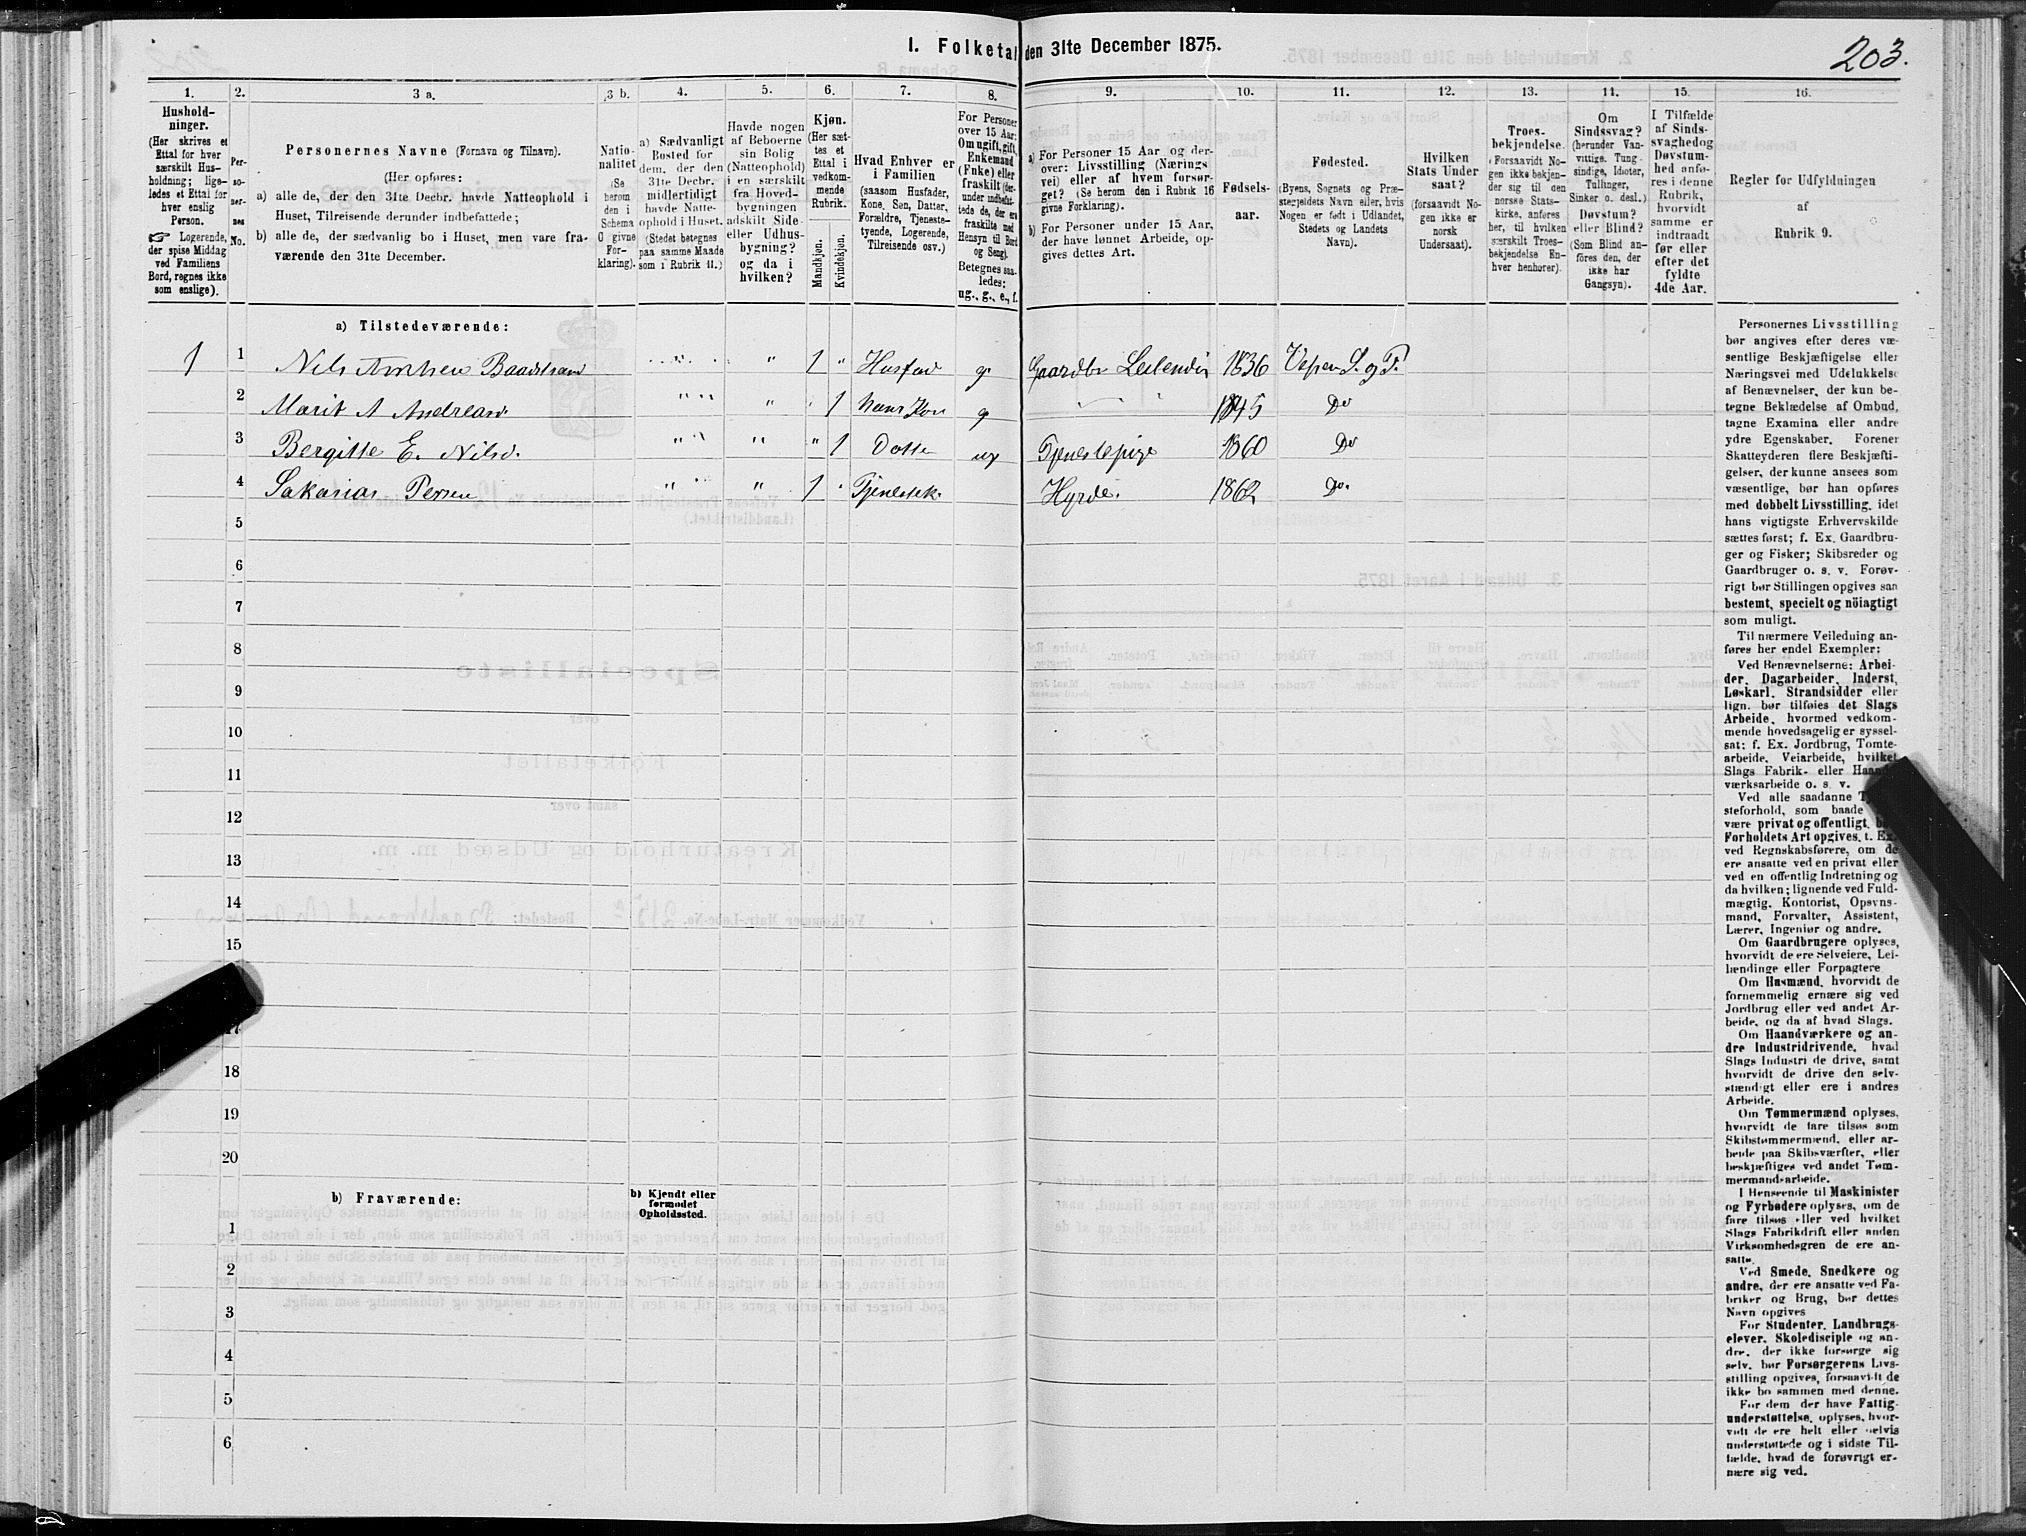 I. Folketal den 31te December 1875.
203.
1.
2.
3 a.
3 b.
4.
5.
6.
7.
8.
9.
10.
11.
12.
13.
14.
15.
16.
Hushold-
ninger.
(Her skrives et
Ettal for hver
særskilt Hus-
holdning; lige-
ledes et Ettal for
hver enslig
Person.
☞ Logerende,
der spise Middag
ved Familiens
Bord, regnes ikke
som enslige).
Per-
so-
ner-
nes
No.
Personernes Navne (Fornavn og Tilnavn).
(Her opføres:
a) alle de, der den 31te Decbr. havde Natteophold i
Huset, Tilreisende derunder indbefattede;
b) alle de, der sædvanlig bo i Huset, men vare fra-
værende den 31te December.
Natio-
nalitet
(Se
herom
den i
Schema
C givne
For-
klaring).
a) Sædvanligt
Bosted for
dem, der den
31te Decbr.
midlertidigt
havde Natte-
ophold i Huset.
(Stedet betegnes
paa samme Maade
som i Rubrik 11.)
Havde nogen
af Beboerne
sin Bolig
(Natteophold)
i en særskilt
fra Hoved-
bygningen
adskilt Side-
eller Udhus-
bygning?
og da i
hvilken?
Kjøn.
(Her sæt-
tes et
Ettal i
vedkom-
mende
Rubrik.
Mandkjøn.
Kvindekjøn.
Hvad Enhver er
i Familien
(saasom Husfader,
Kone, Søn, Datter,
Forældre, Tjeneste-
tyende, Logerende,
Tilreisende osv.)
For Personer
over 15 Aar:
Om ugift, gift,
Enkemand
(Enke) eller
fraskilt (der-
under indbefat-
tede de, der ere
fraskilte med
Hensyn til Bord
og Seng).
Betegnes saa-
ledes:
ug., g., e., f.
a) For Personer 15 Aar og der-
over: Livsstilling (Nærings-
vei) eller af hvem forsør-
get? (Se herom den i Rubrik 16
givne Forklaring).
b) For Personer under 15 Aar,
der have lønnet Arbeide, op-
gives dettes Art.
Fødsels-
aar.
Fødested.
(Byens, Sognets og Præ-
stegjeldets Navn eller, hvis
Nogen er født i Udlandet,
Stedets og Landets
Navn).
Hvilken
Stats Under
saat?
(forsaavidt No-
gen ikke er
norsk
Undersaat).
Troes-
bekjendelse.
(Forsaavidt No-
gen ikke bekjen-
der sig til den
norske Stats-
kirke, anføres
her, til hvilken
særskilt Troes-
bekjendelse En-
hver henhører).
Om
Sindssvag?
(herunder Van-
vittige, Tung-
sindige, Idioter,
Tullinger,
Sinker o. desl.)
Døvstum?
eller Blind?
(Som Blind an-
føres den, der
ikke har
Gangsyn).
I Tilfælde
af Sinds-
svaghed og
Døvstum-
hed anfø-
res i denne
Rubrik,
hvorvidt
samme er
indtraadt
før eller
efter det
fyldte
4de Aar.
Regler for Udfyldningen
af
Rubrik 9.
a) Tilstedeværende:
1 1 Nils Baadstrand " 1 " Husfad g. 1836 Vefsen S. og P.
2 Marit A Andreasd. " 1 hans Kone g 1845 Do
3 Bergitte E. Nilsd. " " " 1 Datte ug Tjenestepige 1860 Do
4 Sakarias Persen " " " 1 " Tjenestek. Hyrde. 1862 Do.
5
6
7
8
9
10
11
12
13
14
15
17
18
19
20
b) Fraværende:
b) Kjendt eller
formodet
Opholdssted.
1
2
3
4
5
6
Personernes Livsstilling
bør angives efter deres væ-
sentlige Beskjæftigelse eller
Næringsvei med Udelukkelse
af Benævnelser, der kun be-
tegne Beklædelse af Ombud,
tagne Examina eller andre
ydre Egenskaber. Forener
Skatteyderen flere Beskjæfti-
gelser, der kunne ansees som
væsentlige, bør han opføres
med dobbelt Livsstilling, idet
hans vigtigste Erhvervskilde
sættes først; f. Ex. Gaardbru-
ger og Fisker; Skibsreder og
Gaardbruger o. s. v. Forøv-
rigt bør Stillingen opgives saa
bestemt, specielt og nöiagtigt
som muligt.
Til nærmere Veiledning an-
føres her endel Exempler:
Ved Benævnelserne: Arbei-
der, Dagarbeider, Inderst,
Løskarl, Strandsidder eller
lign. bør tilføies det Slags
Arbeide, hvormed vedkom-
mende hovedsagelig er syssel-
sat; f. Ex. Jordbrug, Tomte-
arbeide, Veiarbeide, hvilket
Slags Fabrik- eller
værksarbeide o. s. v.
Ved alle saadanne
steforhold, som baade
være privat og offentligt,
Forholdets Art opgives, t. Ex.
ved Regnskabsførere, om de
ere ansatte ved en privat eller
ved en offentlig Indretning og
da hvilken; lignende ved Fuld-
mægtig, Kontorist, Opsyns-
mand, Forvalter, Assistent,
Lærer, Ingeniør og andre.
Om Gaardbrugere oplyses,
hvorvidt de ere Selveiere, Lei-
lændinge eller Forpagtere
Om Husmænd, hvorvidt de
fornemmelig ernære sig ved
Jordbrug eller ved andet Ar-
beide, og da af hvad Slags.
Om Haandværkere og an-
dre Industridrivende, hvad
Slags Industri de drive, samt
hvorvidt de drive den selv-
stændigt eller ere i andres
Arbeide.
Om Tømmermænd oplyses,
hvorvidt de fare tilsøs som
Skibstømmermænd, eller ar-
beide paa Skibsværfter, eller
beskjæftiges ved andet Tøm-
mermandsarbeide.
I Henseende til Maskinister
og Fyrbødere oplyses, om de
fare tilsøs eller ved hvilket
Slags Fabrikdrift eller anden
Virksomhedsgren de ere an-
satte.
Ved Smede, Snedkere og
andre, der ere ansatte ved Fa-
briker og Brug, bør dettes
Navn opgives
For Studenter, Landbrugs-
elever, Skoledisciple og an-
dre, der ikke forsørge sig
selv, bør Forsørgerens Livs-
stilling opgives, forsaavidt de
ikke bo sammen med denne.
For dem der have Fattig-
understøttelse, oplyses, hvor-
vidt de ere helt eller delvis
understøttede og i sidste Til-
fælde, hvad de forøvrigt er-
nære sig ved.